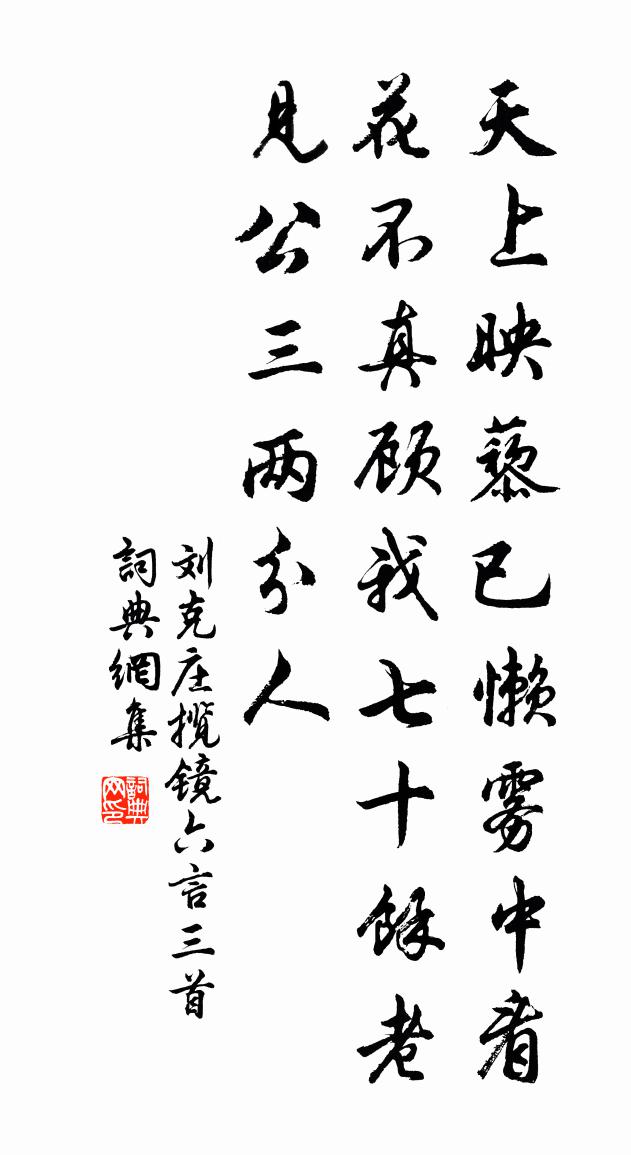 天上映藜已懒雾中看
花不真顾我七十餘老
见公三两分人
刘克庄揽镜六言三首
詞典網集
詞典
网印